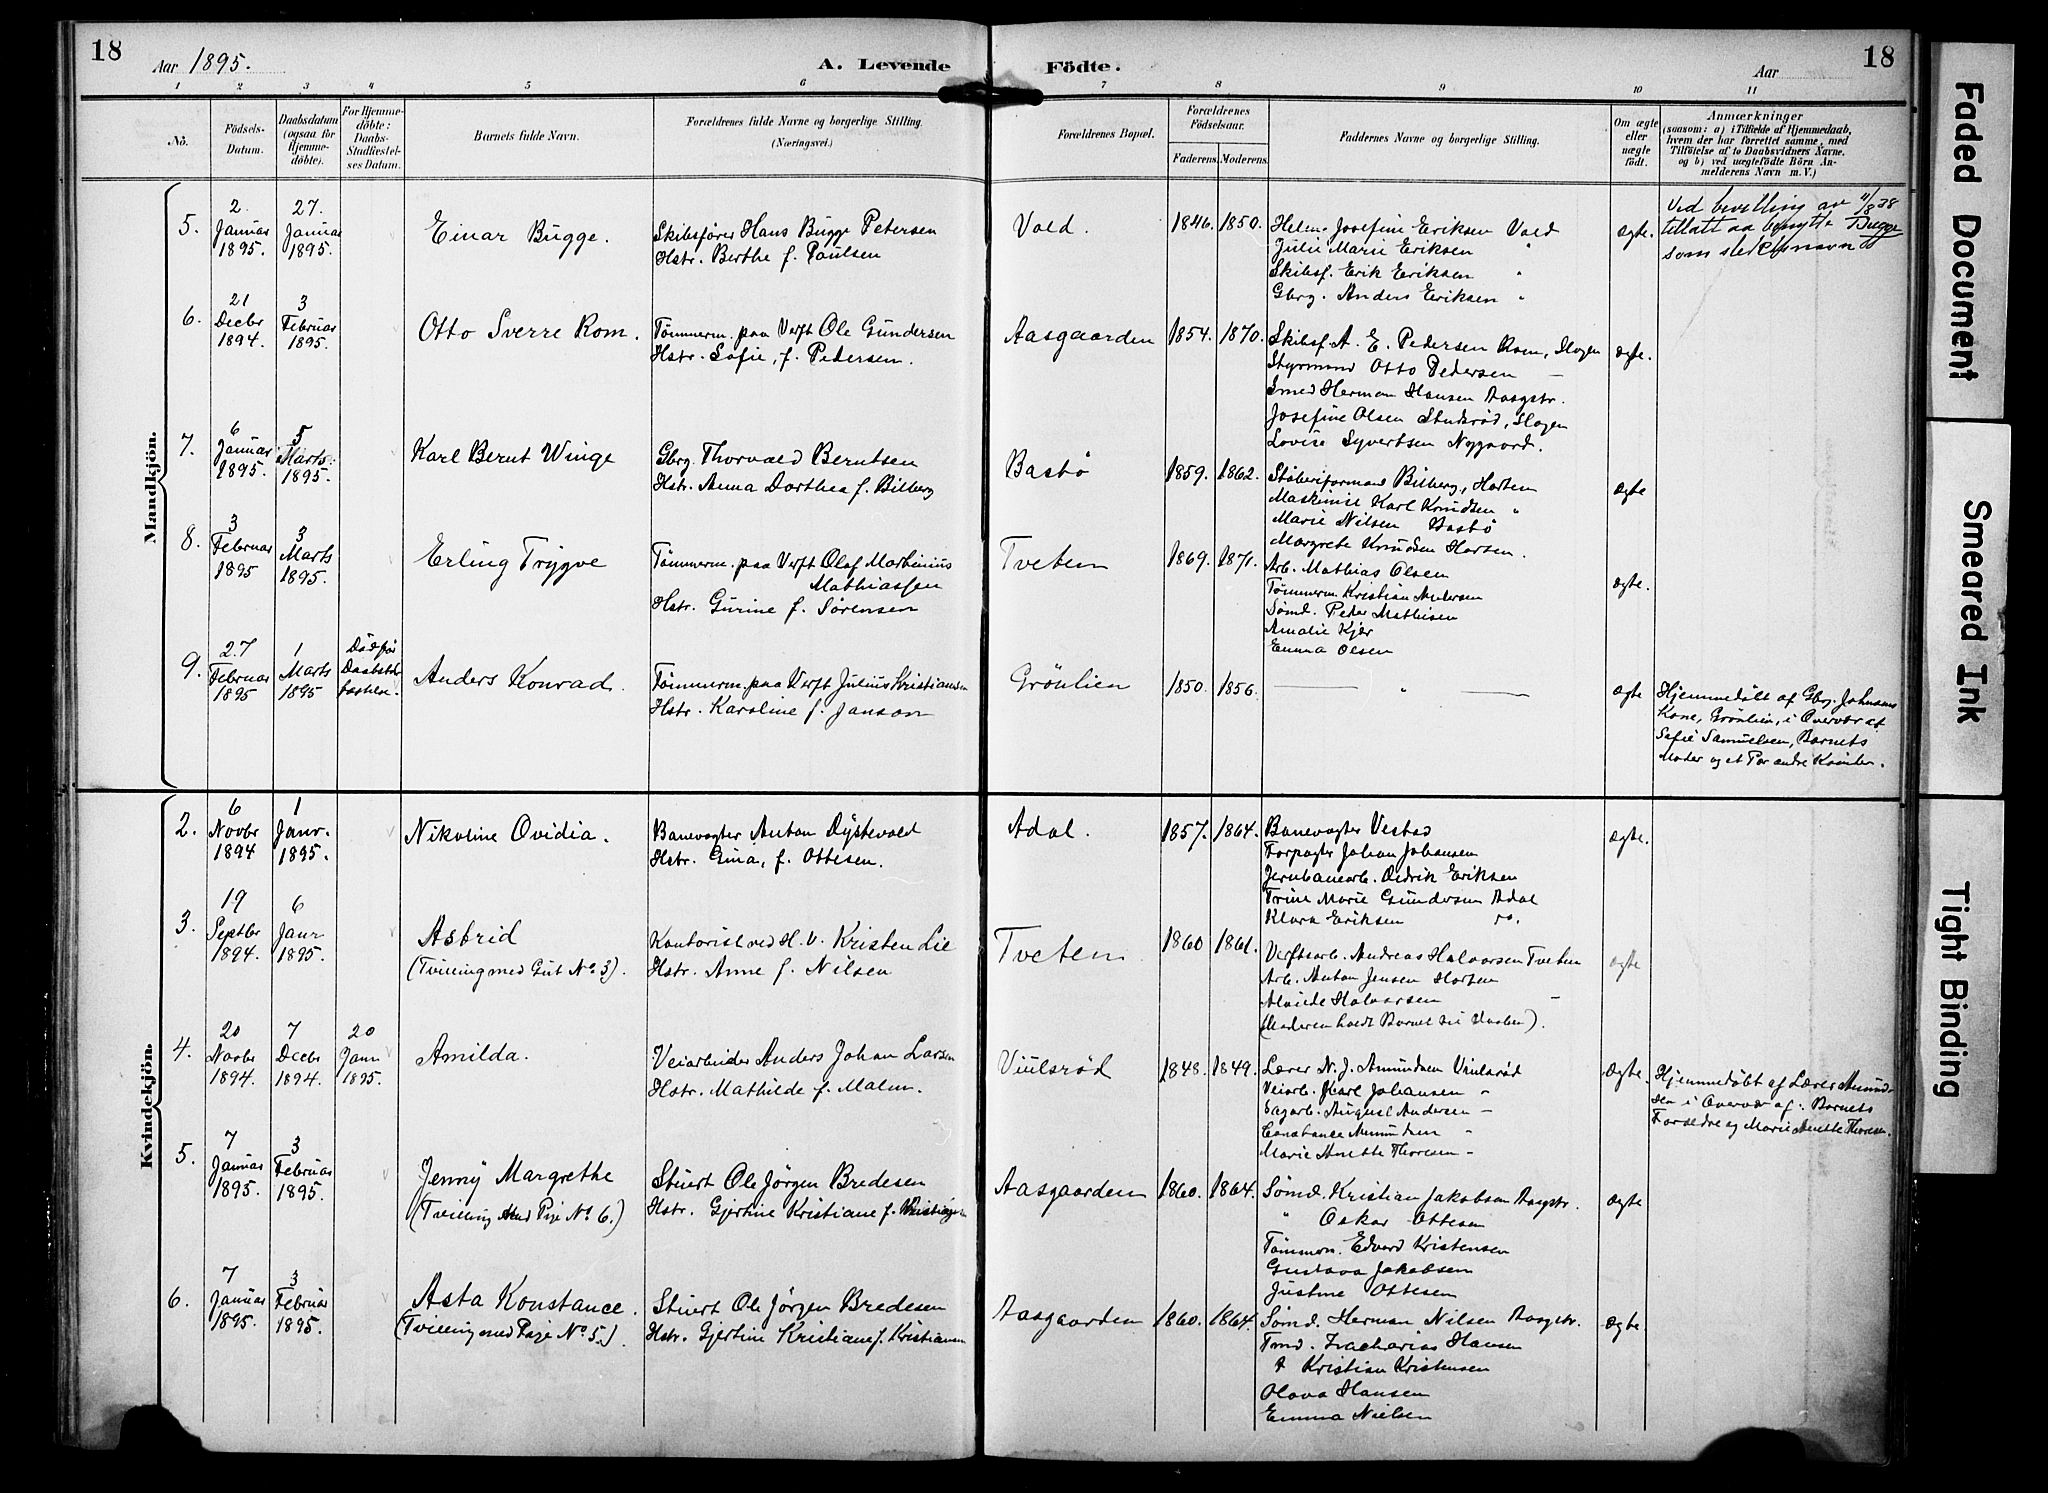 18
Aar 1895.
A. Levende Födte.
Aar
18
1 2 3 4 5 6 7 8 9 10 11
No.
Födsels-Datum.
Daabsdatum (ogsaa for Hjemme-döbte).
For Hjemme-döbte: Daabs-Stadfæstel-ses Datum.
Barnets fulde Navn.
Forældrenes fulde Navne og borgerlige Stilling. (Næringsvei.)
Forældrenes Bopæl.
Forældrenes Födselsaar.
Faderens. Moderens.
Faddernes Navne og borgerlige Stilling.
Om ægte eller uægte födt.
Anmærkninger
(saasom: a) i Tilfælde af Hjemmedaab,
hvem der har forrettet samme, med
Tilföielse af to Daabsvidners Navne,
og b) ved uægtefödte Börn An-
melderens Navn m. V.)
Mandkjön.
5. 2. Januar 1895. 27. Januar 1895. Einar Bugge.
Skibsfører Hans Bugge Petersen
Hstr. Berthe f. Paulsen
Vold. 1846. 1850.
Helene Josefine Eriksen Vold
Julie Marie Eriksen "
Skibsf. Erik Eriksen "
Gbrg. Anders Eriksen "
ægte.
Ved bevilling av 11/8 38
tillatt aa benytte Bugge
som slektsnavn
6. 21 Decbr 1894. 3 Februar 1895. Otto Sverre Rom.
Tømmerm. paa Verft Ole Gundersen
Hstr. Sofie, f. Pedersen.
Aasgaarden 1854. 1870.
Skibsf. A. E. Pedersen Rom, Slagen
Styrmand Otto Pedersen —
Smed Herman Hansen Aasgstr.
Josefine Olsen Slagen
Lovise Syvertsen Nygaard.
ægte.
7. 6 Januar 1895. 5 Marts 1895. Karl Bernt Winge
Gbrg. Thorvald Berntsen
Hstr. Anna Dorthea f. Bilberg
Bastø 1859. 1862.
Støberiformand Bilberg, Horten
Maskinist Karl Knudsen "
Marie Nilsen Bastø
Margrete Knudsen Horten.
ægte
8. 3 Februar 1895 3 Marts 1895. Erling Trygve
Tømmerm. paa Verft Olaf Martinius
Mathiassen
Hstr. Gurine f. Sørensen
Tveten 1869. 1871.
Arb. Mathias Olsen
Tømmerm. Kristian Andersen
Sømd. Peder Mathisen
Amalie Kjær
Emma Olsen
ægte.
9. 27 Februar 1895 1 Marts 1895 Død før Daabstad-fæstelse. Anders Konrad.
Tømmerm. paa Verft Julius Kristiansen
Hstr. Karoline f. Janson
Grønlien 1850. 1856.
— " —
ægte
Hjemmedøbt af Gbrg. Johnsens
Kone, Grønlien, i Overvær af
Sofie Samuelsen, Barnets
Moder og et Par andre Kvinder.
Kvindekjön.
2. 6 Novbr 1894 1 Janr. 1895. Nikoline Ovidia.
Banevogter Anton Dystevold
Hstr. Gina, f. Ottesen.
Adal. 1857. 1864.
Banevogter Vestad
Forpagter Johan Johansen
Jernbanearb. Didrik Eriksen
Trine Marie Gundersen Adal
Klara Eriksen
ægte.
3. 19 Septbr 1894. 6 Janr 1895. Astrid
(Tvilling med Gut No 3).
Kontorist ved H. V. Kristen Lie
Hstr. Anne f. Nilsen
Tveten. 1860 1861.
Verftsarb. Andreas Halvorsen Tveten
Arb. Anton Jensen Horten
Alvide Halvorsen —
(Moderen holdt Barnet til Daaben).
ægte
4. 20 Novbr 1894. 7 Decbr 1894. 20 Janr 1895. Amilda.
Veiarbeider Anders Johan Larsen
Hstr. Mathilde f. Malm.
Viulsrød 1848. 1849.
Lærer N. J. Amundsen Viulsrød
Veiarb. Karl Johansen "
Sagarb. August Andersen —
Constance Amundsen "
Marie Anette Thoresen —
Ægte.
Hjemmedøbt af Lærer Amund-
sen i Overvær af: Barnets
Forældre og Marie Anette Thoresen.
5. 7 Januar 1895. 3 Februar 1895. Jenny Margrethe
(Tvilling med Pige No 6.)
Stuert Ole Jørgen Bredesen
Hstr. Gjertine Kristiane f. Kristiansen
Aasgaarden 1860. 1864.
Sømd. Kristian Jakobsen Aasgstr.
" Oskar Ottesen
Tømmerm. Edvard Kristensen
Gustava Jakobsen
Justine Ottesen
ægte
6. 7 Januar 1895. 3 Februar 1895. Asta Konstance.
(Tvilling med Pige No 5.)
Stuert Ole Jørgen Bredesen
Hstr. Gjertine Kristiane f. Kristiansen
Aasgaarden 1860. 1864.
Sømd. Herman Nilsen Aasgstr.
Tmd. Zacharias Hansen
Kristian Kristensen
Olava Hansen
Emma Nielsen
ægte
Faded Document
Smeared Ink
Tight Binding